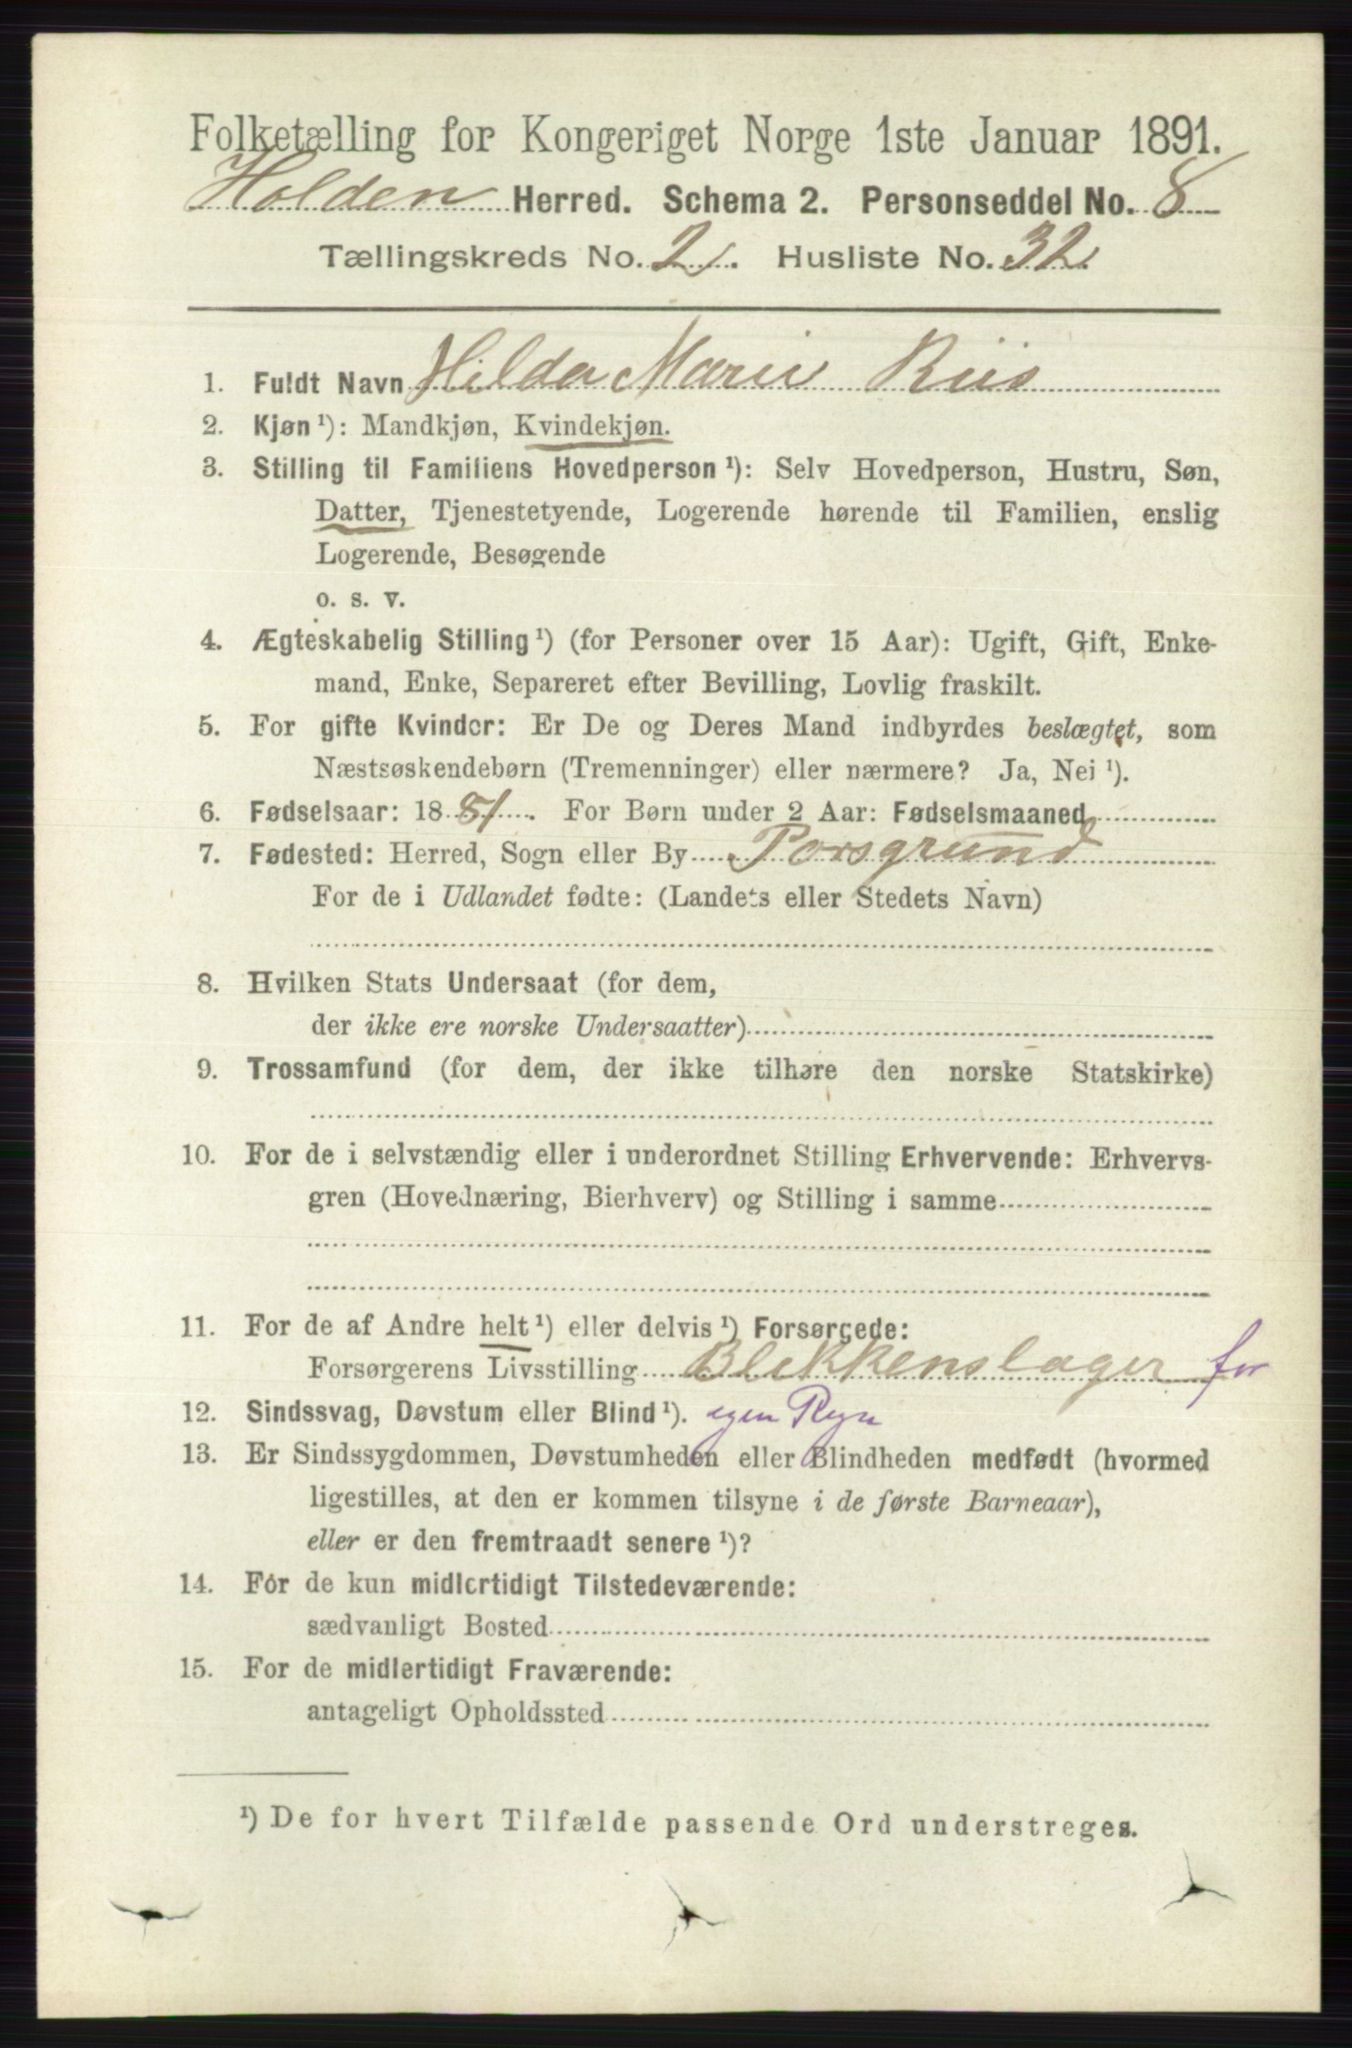 Folketælling for Kongeriget Norge 1ste Januar 1891.
Holden Herred. Schema 2. Personseddel No. 8
Tællingskreds No. 2. Husliste No. 32.
1. Fuldt Navn Hilda Marie Riis
2. Kjøn ¹): Mandkjøn, Kvindekjøn.
3. Stilling til Familiens Hovedperson ¹): Selv Hovedperson, Hustru, Søn,
Datter, Tjenestetyende, Logerende hørende til Familien, enslig
Logerende, Besøgende
o. s. v.
4. Ægteskabelig Stilling ¹) (for Personer over 15 Aar): Ugift, Gift, Enke-
mand, Enke, Separeret efter Bevilling, Lovlig fraskilt.
5. For gifte Kvinder: Er De og Deres Mand indbyrdes beslægtet, som
Næstsøskendebørn (Tremenninger) eller nærmere? Ja, Nei ¹).
6. Fødselsaar: 1881. For Børn under 2 Aar: Fødselsmaaned
7. Fødested: Herred, Sogn eller By Porsgrund
For de i Udlandet fødte: (Landets eller Stedets Navn)
8. Hvilken Stats Undersaat (for dem,
der ikke ere norske Undersaatter)
9. Trossamfund (for dem, der ikke tilhøre den norske Statskirke)
10. For de i selvstændig eller i underordnet Stilling Erhvervende: Erhvervs-
gren (Hovednæring, Bierhverv) og Stilling i samme
11. For de af Andre helt ¹) eller delvis ¹) Forsørgede:
Forsørgerens Livsstilling Blikkenslager for
12. Sindssvag, Døvstum eller Blind ¹). egen Regn
13. Er Sindssygdommen, Døvstumheden eller Blindheden medfødt (hvormed
ligestilles, at den er kommen tilsyne i de første Barneaar),
eller er den fremtraadt senere ¹)?
14. For de kun midlertidigt Tilstedeværende:
sædvanligt Bosted
15. For de midlertidigt Fraværende:
antageligt Opholdssted
¹) De for hvert Tilfælde passende Ord understreges.